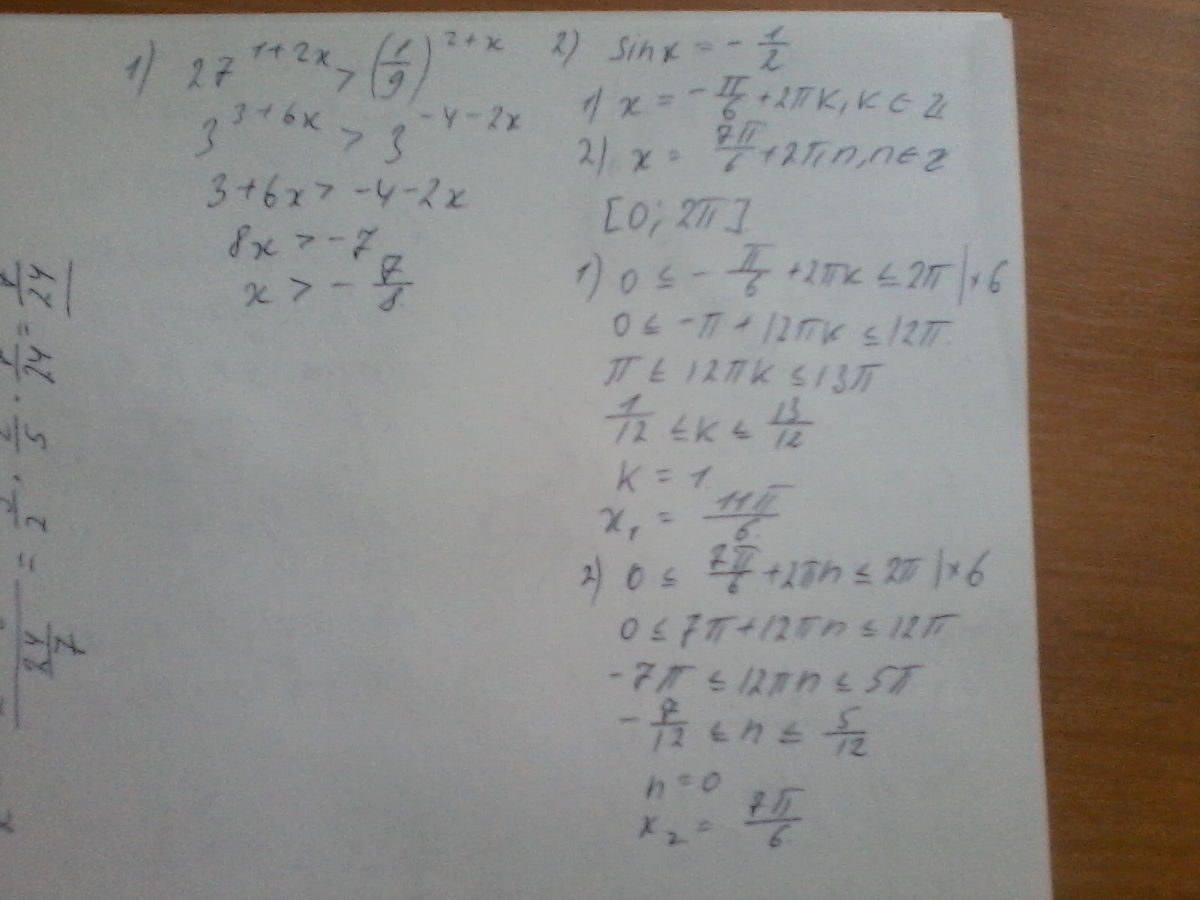 1) 27^{1+2x} > (1/9)^{2+x}
3^{3+6x} > 3^{-4-2x}
3+6x > -4-2x
8x > -7
x > -7/8
2) sinx = -1/2
1) x = -π/6 + 2πk, k ∈ Z
2) x = 7π/6 + 2πn, n ∈ Z
[0; 2π]
1) 0 ≤ -π/6 + 2πk ≤ 2π | × 6
0 ≤ -π + 12πk ≤ 12π
π ≤ 12πk ≤ 13π
1/12 ≤ k ≤ 13/12
k = 1
x₁ = 11π/6
2) 0 ≤ 7π/6 + 2πn ≤ 2π | × 6
0 ≤ 7π + 12πn ≤ 12π
-7π ≤ 12πn ≤ 5π
-7/12 ≤ n ≤ 5/12
n = 0
x₂ = 7π/6